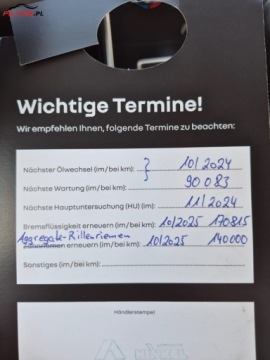 Wichtige Termine!
Wir empfehlen Ihnen, folgende Termine zu beachten:
Nächster Ölwechsel (im/bei km): } 10/2024
Nächste Wartung (im/bei km): 90083
Nächste Hauptuntersuchung (HU) (im): 11/2024
Bremsflüssigkeit erneuern (im/bei km): 10/2025 170815
Aggregate-Rillenriemen
erneuern (im/bei km): 10/2025 140000
Sonstiges (im/bei km):
Händlerstempel